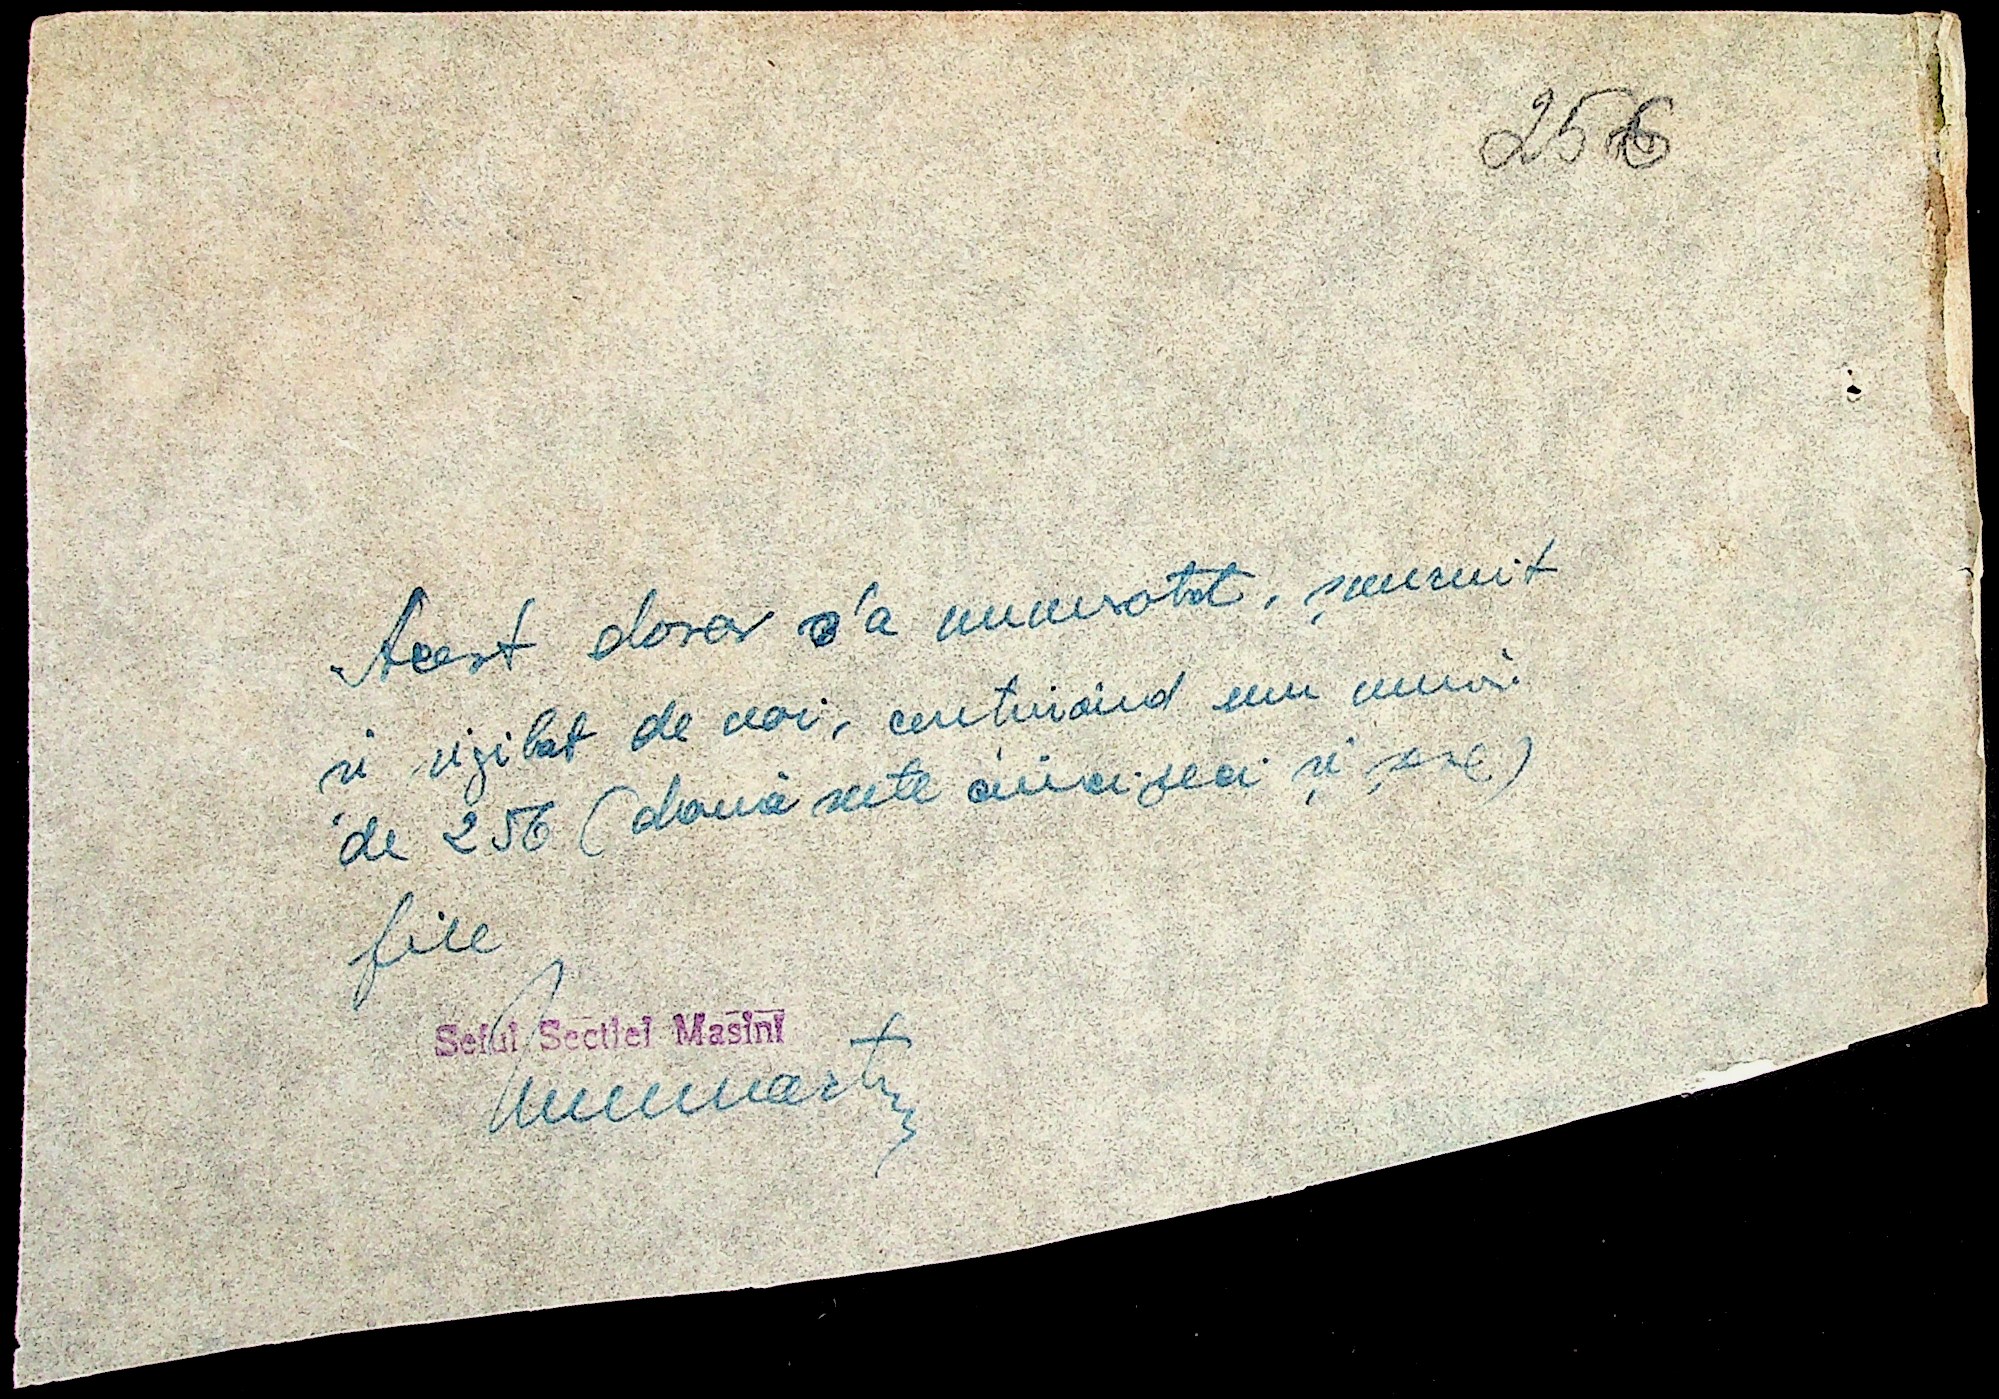 256
Acest dosar s'a numerotat, șnuruit
și sigilat de noi, conținând un număr
de 256 (două sute cincizeci și șase)
file
Seful Sectiei Masini